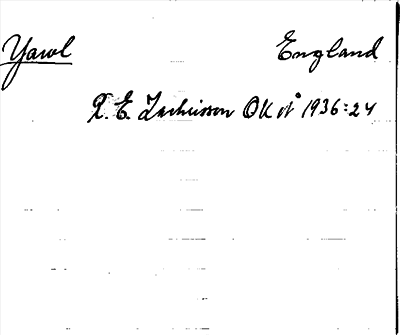 Yawl England
R. E. Zachrisson OK nº 1936:24